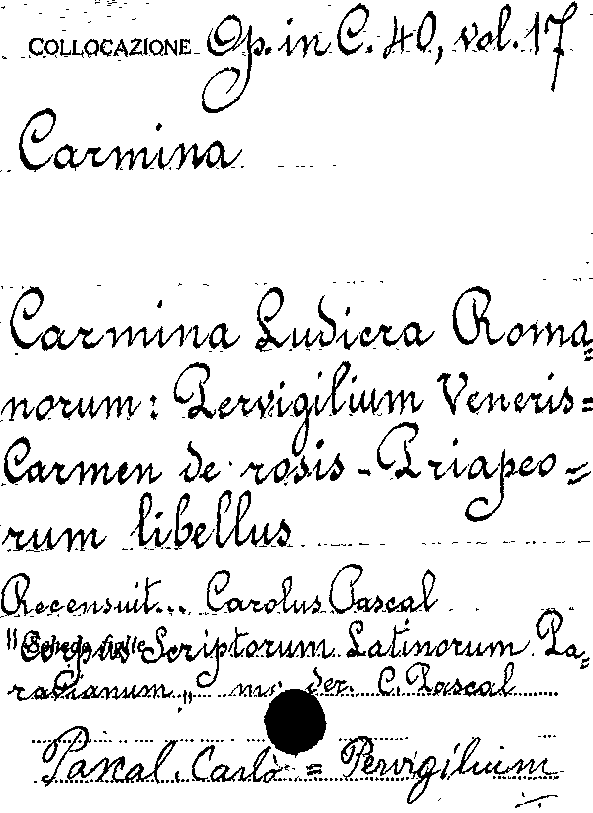 COLLOCAZIONE Op. in C. 40, vol. 17
Carmina
Carmina Ludicra Roma=
norum: Pervigilium Veneris=
Carmen de rosis - Priapeo=
rum libellus
Recensuit... Carolus Pascal
"Corpus Scriptorum Latinorum Pa=
ravianum" der. C. Pascal
Pascal. Carlo = Pervigilium